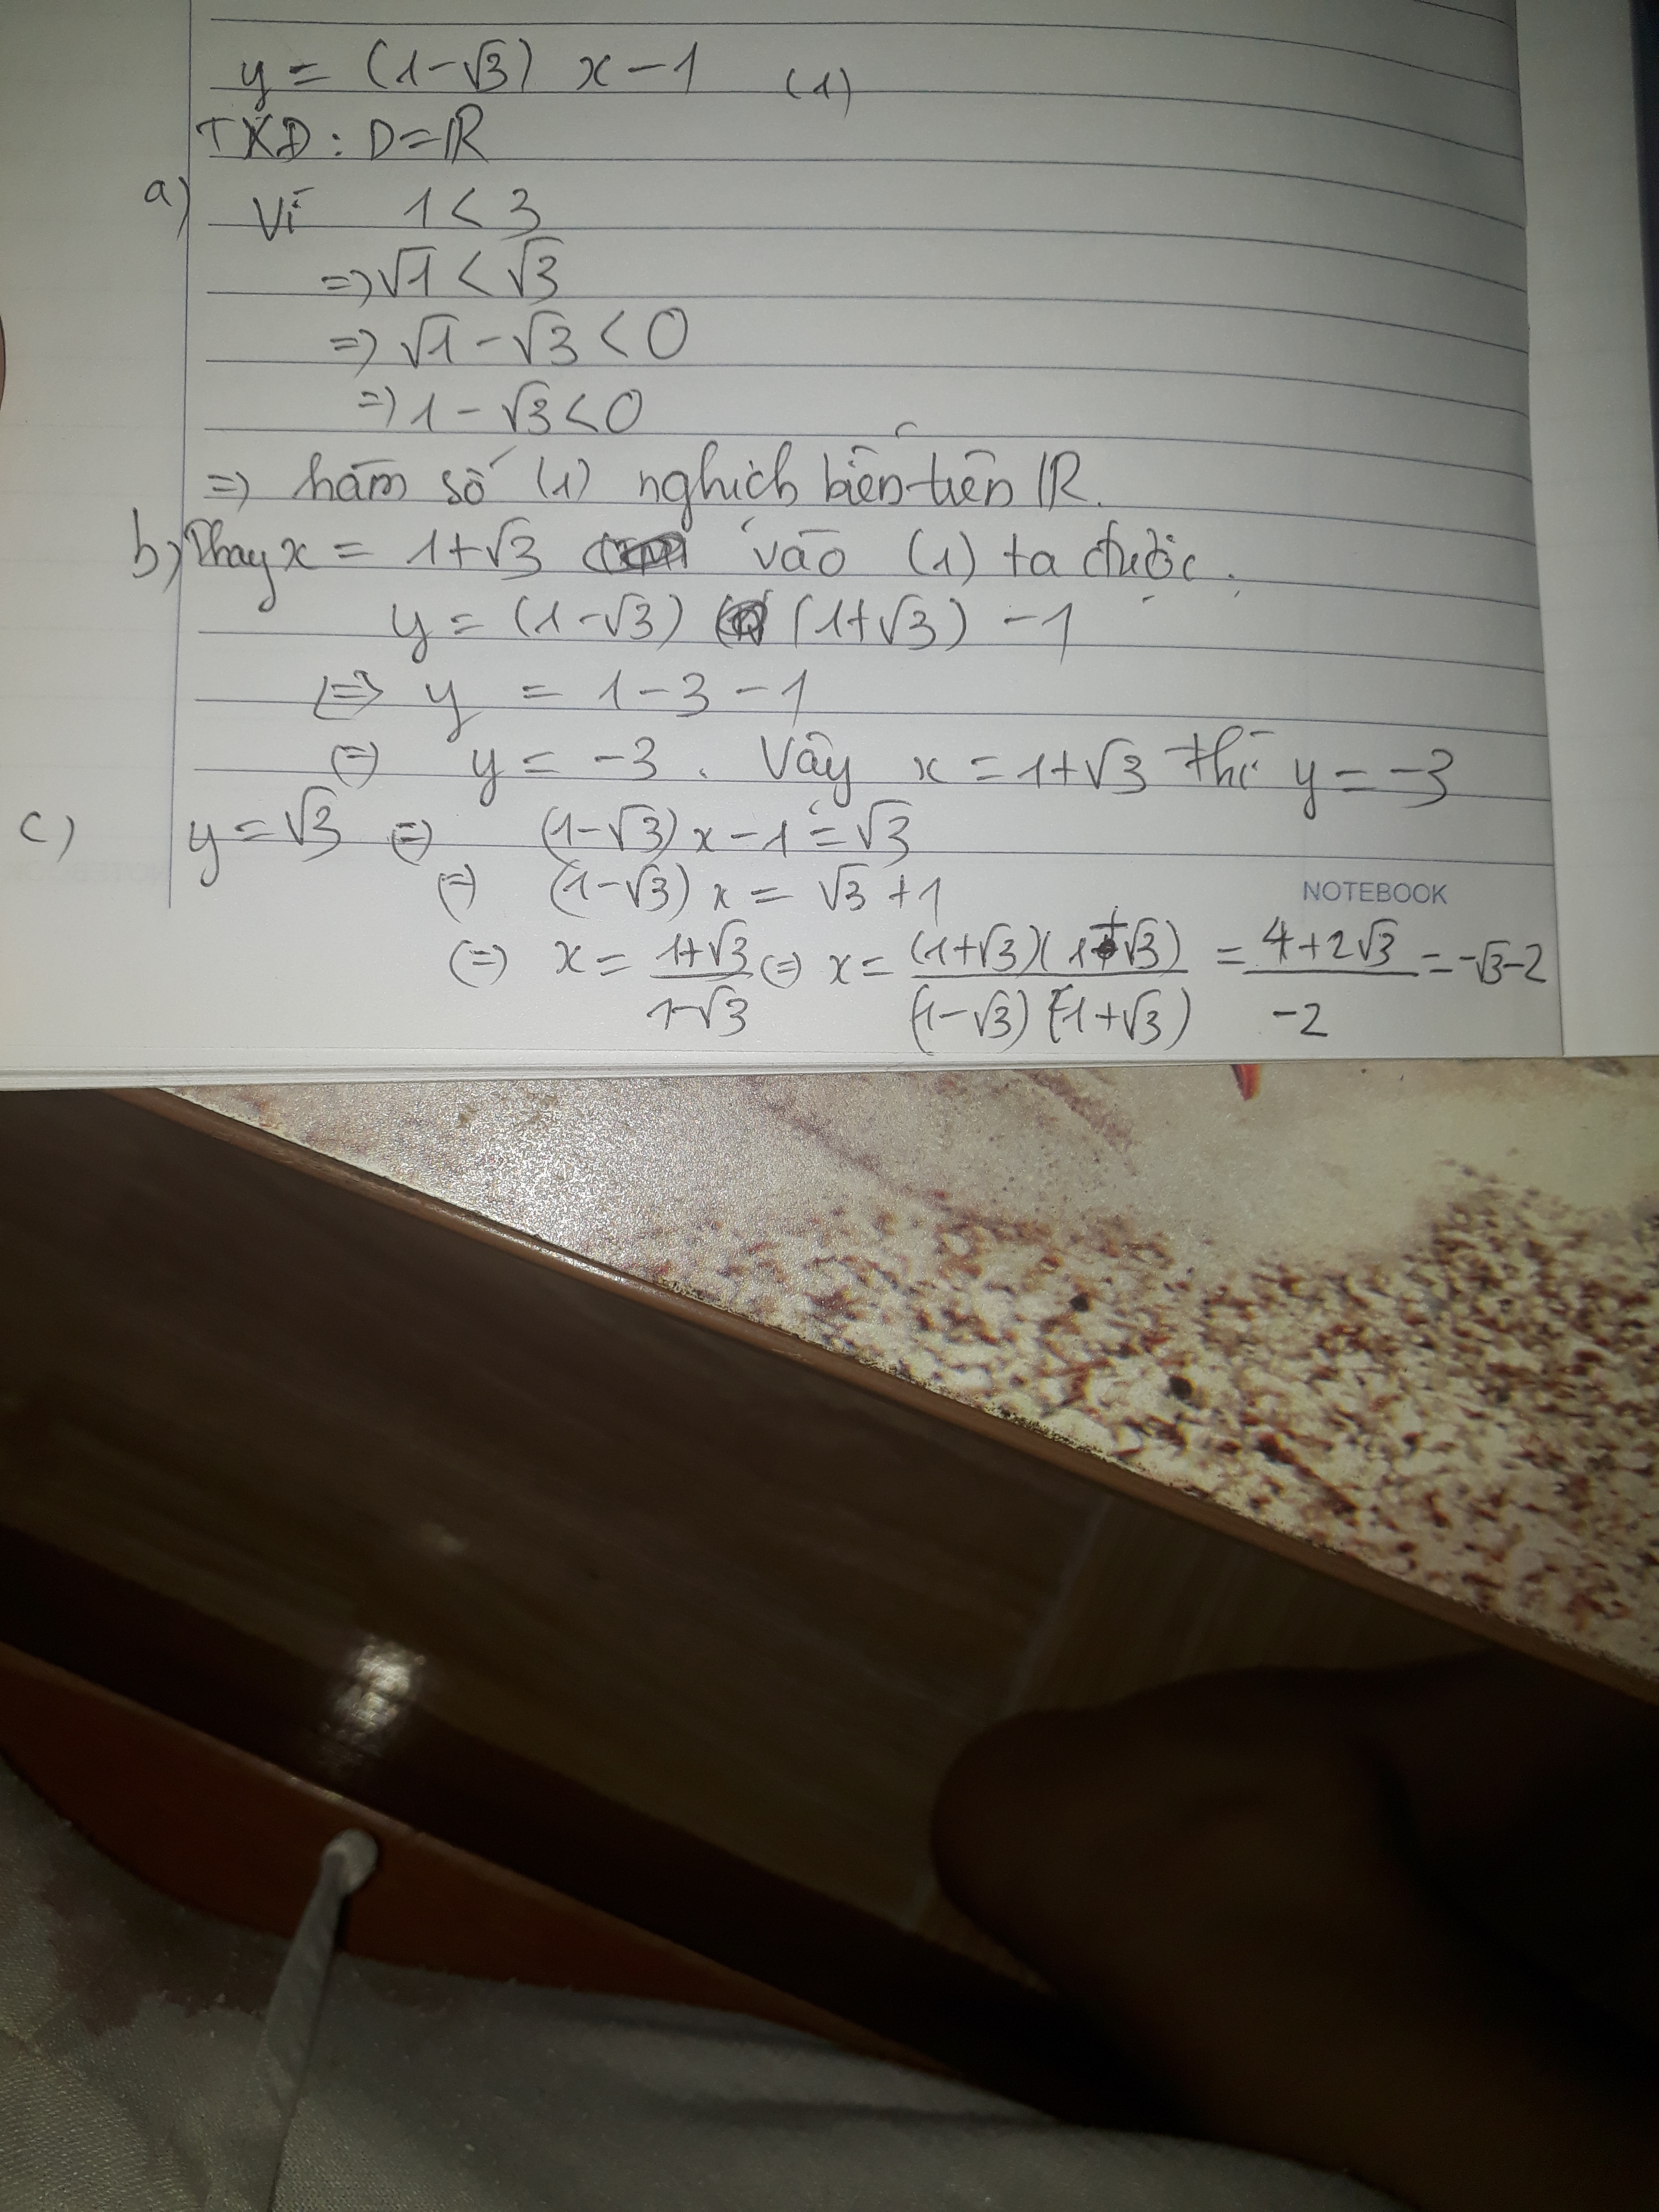 y = (1-√3) x - 1 (1)
TXĐ : D = ℝ
a) Vì 1 < 3
=> √1 < √3
=> √1 - √3 < 0
=> 1 - √3 < 0
=> hàm số (1) nghịch biến trên ℝ.
b) Thay x = 1+√3 vào (1) ta được:
y = (1-√3) (1+√3) - 1
<=> y = 1 - 3 - 1
<=> y = -3. Vậy x = 1+√3 thì y = -3
c) y = √3 <=> (1-√3) x - 1 = √3
<=> (1-√3) x = √3 + 1
NOTEBOOK
<=> x = (1+√3)/(1-√3) <=> x = (1+√3)(1+√3)/(1-√3)(1+√3) = (4+2√3)/(-2) = -√3-2